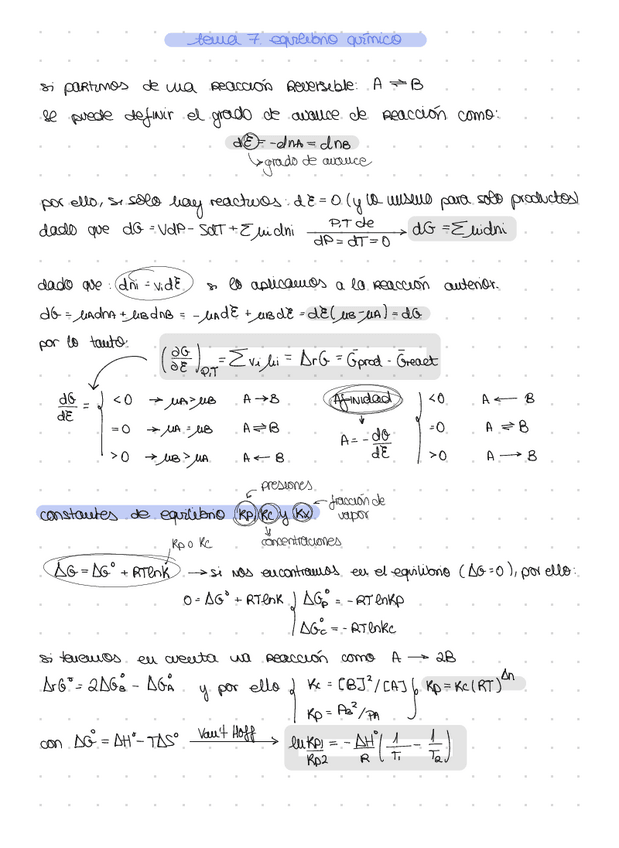 tema 7. equilibrio químico
si partimos de una reacción reversible: A ⇌ B
se puede definir el grado de avance de reacción como:
dξ = -dnA = dnB
↳ grado de avance
por ello, si solo hay reactivos: dξ = 0 (y lo mismo para solo productos)
dado que dG = VdP - SdT + Σμidni P,T cte dP = dT = 0 → dG = Σμidni
dado que: dni = νidξ si lo aplicamos a la reacción anterior.
dG = μAdnA + μBdnB = -μAdξ + μBdξ = dξ(μB - μA) = dG
por lo tanto: (∂G/∂ξ)P,T = Σνiμi = ΔrG = Gprod - Greact
dG/dξ = { <0 → μA > μB A → B
=0 → μA = μB A ⇌ B
>0 → μB > μA A ← B
Afinidad
A = - dG/dξ { <0 A ← B
=0 A ⇌ B
>0 A → B
presiones
constantes de equilibrio Kp, Kc y Kx → fracción de vapor
Kp o Kc
concentraciones
ΔG = ΔG° + RTlnK → si nos encontramos en el equilibrio (ΔG=0), por ello:
0 = ΔG° + RTlnK { ΔG°p = -RTlnKp
ΔG°c = -RTlnKc
si tenemos en cuenta una reacción como A → 2B
ΔrG° = 2ΔG°B - ΔG°A y por ello { Kc = [B]²/[A] } Kp = Kc(RT)^Δn
Kp = PB²/PA
con ΔG° = ΔH° - TΔS° Van't Hoff → ln Kp1/Kp2 = - ΔH°/R (1/T1 - 1/T2)